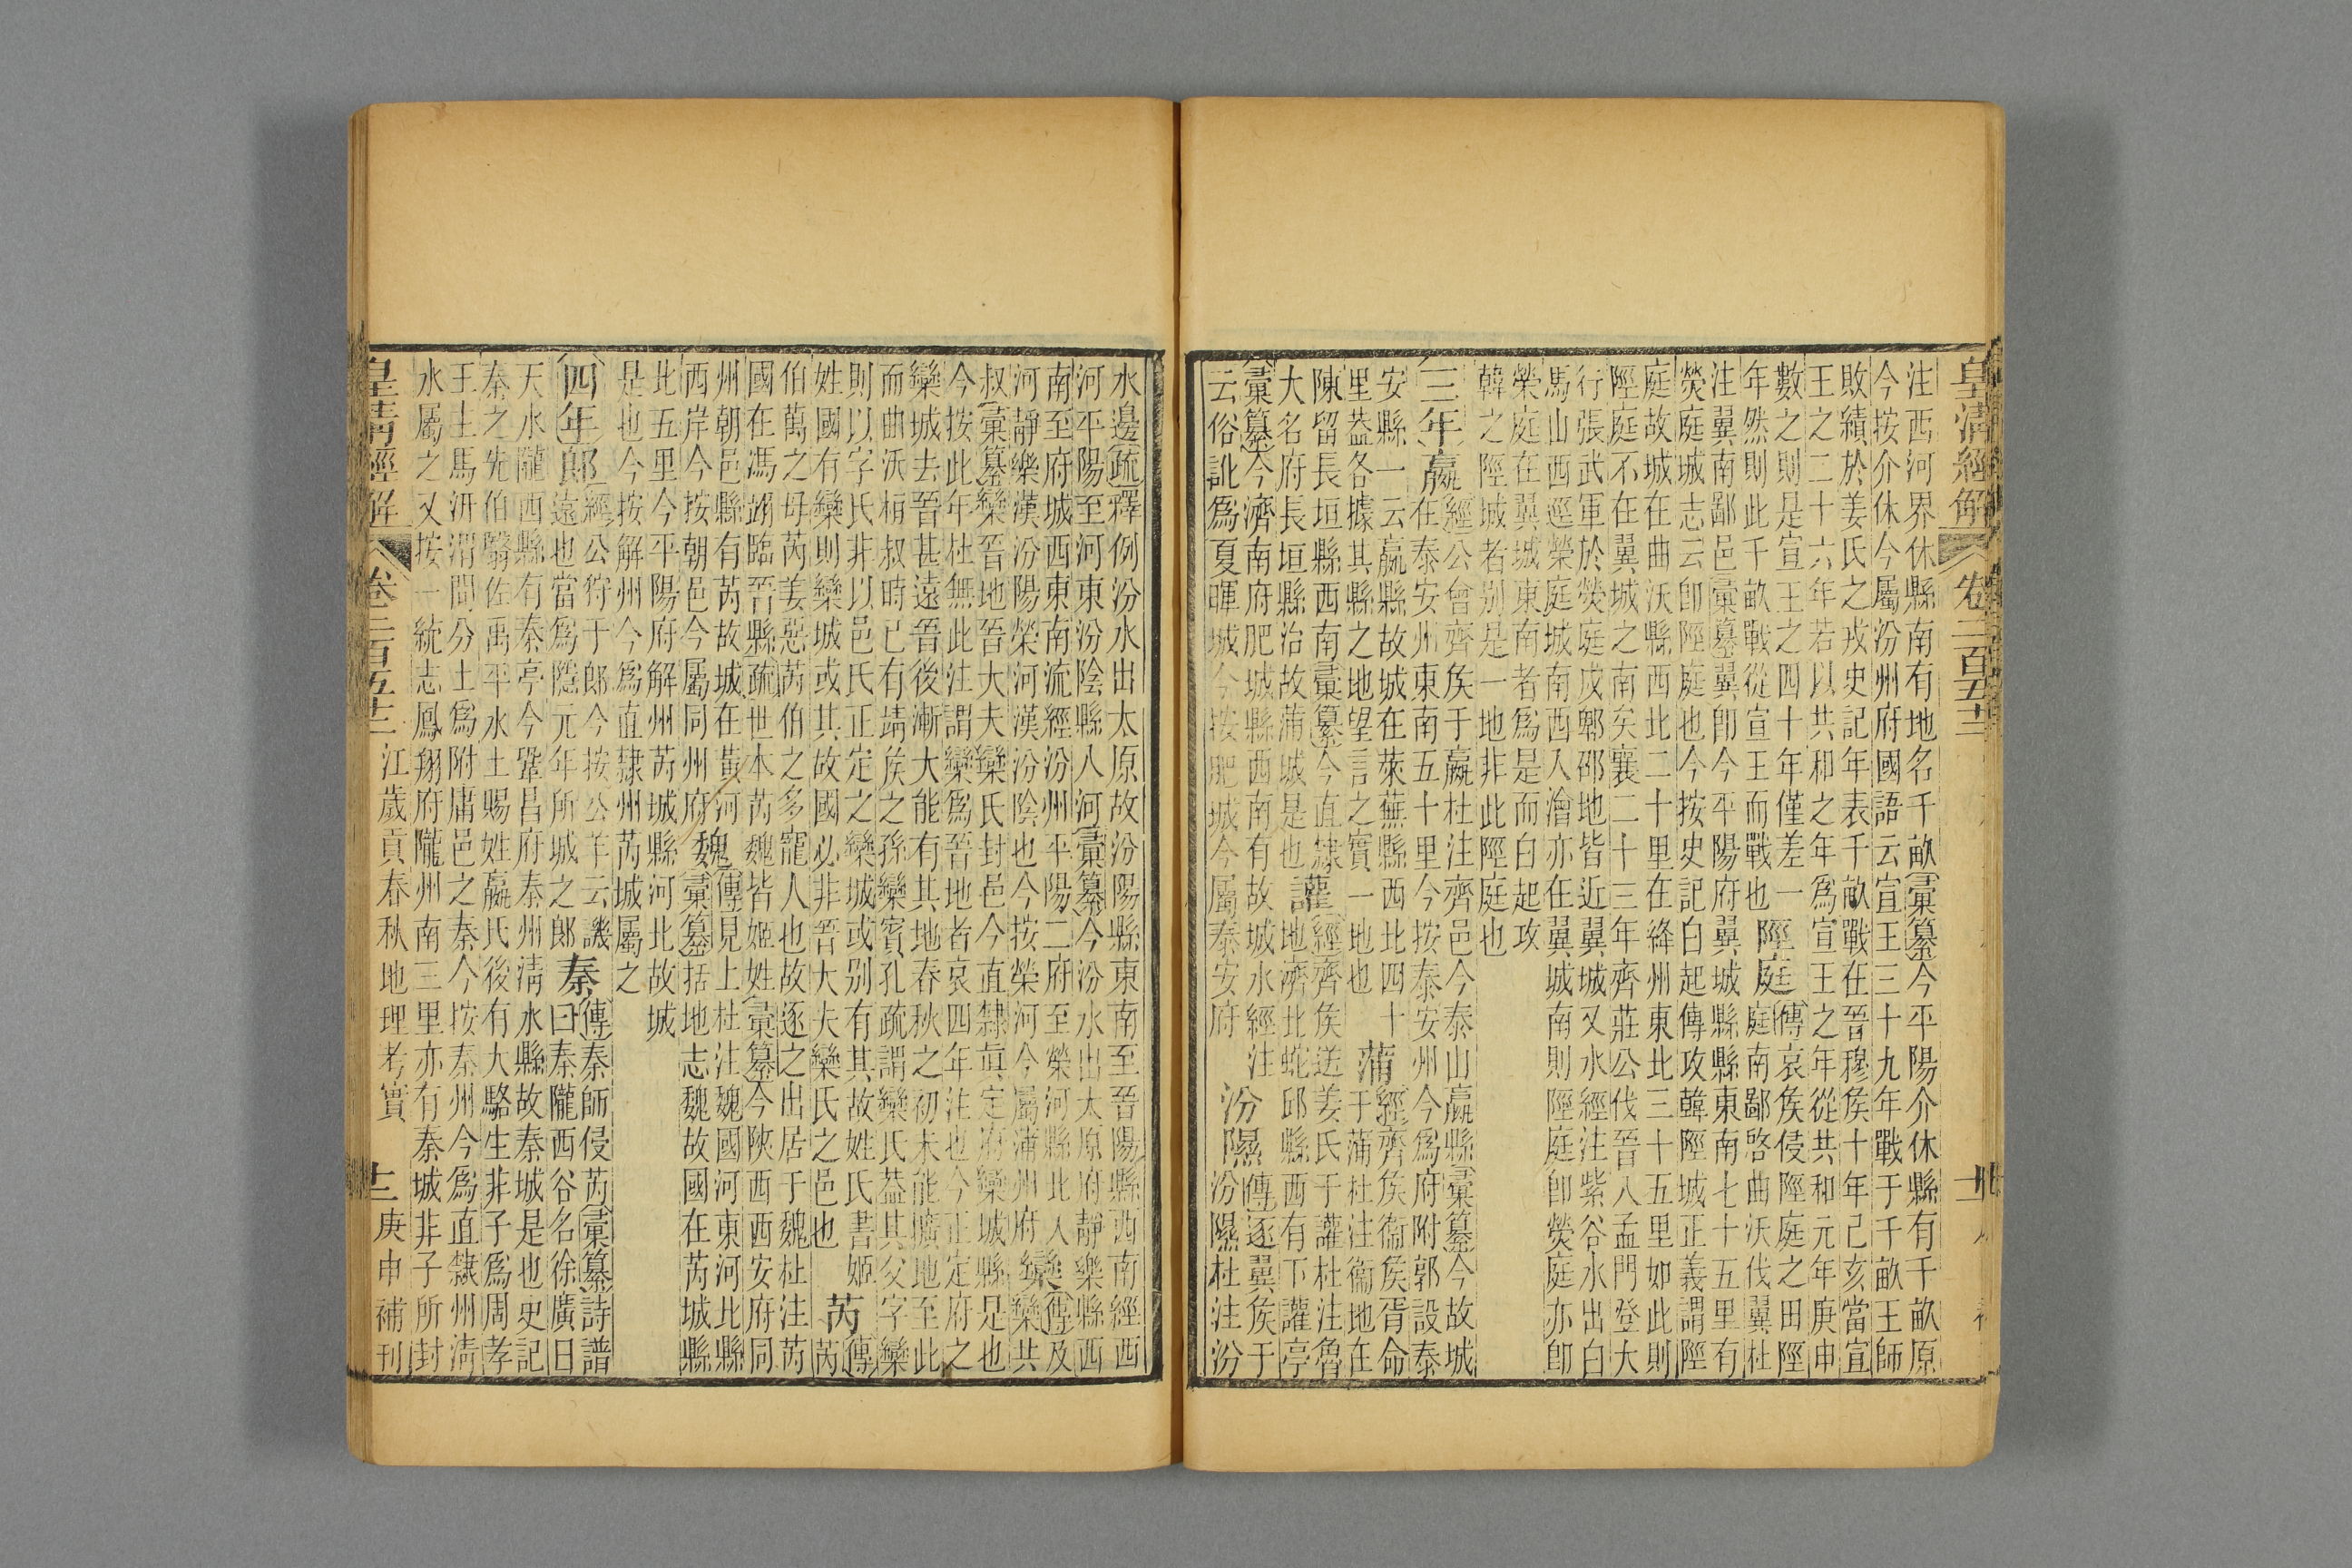 皇清經解 卷二百五十三
注西河界休縣南有地名千畝彙纂今平陽介休縣有千畝原
今按介休今屬汾州府國語云宣王三十九年戰于千畝王師
敗績於姜氏之戎史記年表千畝戰在晉穆侯十年己亥當宣
王之二十六年若以共和之年爲宣王之年從共和元年庚申
數之則是宣王之四十年僅差一
年然則此千畝戰從宣王而戰也
陘庭傳哀侯侵陘庭之田陘
庭南鄙啓曲沃伐翼杜
注翼南鄙邑彙纂翼卽今平陽府翼城縣縣東南七十五里有
熒庭城志云卽陘庭也今按史記白起傳攻韓陘城正義謂陘
庭故城在曲沃縣西北二十里在絳州東北三十五里如此則
陘庭不在翼城之南矣襄二十三年齊莊公伐晉入孟門登大
行張武軍於熒庭戍郫邵地皆近翼城又水經注紫谷水出白
馬山西逕熒庭城南西入澮亦在翼城南則陘庭卽熒庭亦卽
榮庭在翼城東南者爲是而白起攻
韓之陘城者别是一地非此陘庭也
三年嬴經公會齊侯于嬴杜注齊邑今泰山嬴縣彙纂今故城
在泰安州東南五十里今按泰安州今爲府附郭設泰
安縣一云嬴縣故城在萊蕪縣西北四十
里葢各據其縣之地望言之實一地也
蒲經齊侯衞侯胥命
于蒲杜注衞地在
陳留長垣縣西南彙纂今直隸
大名府長垣縣治故蒲城是也
讙經齊侯送姜氏于讙杜注魯
地濟北蛇邱縣西有下讙亭
彙纂今濟南府肥城縣西南有故城水經注
云俗訛爲夏暉城今按肥城今屬泰安府
汾隰傳逐翼侯于
汾隰杜注汾
水邊疏釋例汾水出太原故汾陽縣東南至晉陽縣西南經西
河平陽至河東汾陰縣入河彙纂今汾水出太原府靜樂縣西
南至府城西東南流經汾州平陽二府至榮河縣北入
河靜樂漢汾陽榮河漢汾陰也今按榮河今屬蒲州府
欒傳及
欒共
叔彙纂欒晉地晉大夫欒氏封邑今直隸眞定府欒城縣是也
今按此年杜無此注謂欒爲晉地者哀四年注也今正定府之
欒城去晉甚遠晉後漸大能有其地春秋之初未能擴地至此
而曲沃桓叔時已有靖侯之孫欒賓孔疏謂欒氏葢其父字欒
則以字氏非以邑氏正定之欒城或别有其故姓氏書姬
姓國有欒則欒城或其故國必非晉大夫欒氏之邑也
芮傳
芮
伯萬之母芮姜惡芮伯之多寵人也故逐之出居于魏杜注芮
國在馮翊臨晉縣疏世本芮魏皆姬姓彙纂今陝西西安府同
州朝邑縣有芮故城在黃河
西岸今按朝邑今屬同州府
魏傳見上杜注魏國河東河北縣
彙纂括地志魏故國在芮城縣
北五里今平陽府解州芮城縣河北故城
是也今按解州今爲直隸州芮城屬之
四年郎經公狩于郎今按公羊云譏
遠也當爲隱元年所城之郎
秦傳秦師侵芮彙纂詩譜
曰秦隴西谷名徐廣曰
天水隴西縣有秦亭今鞏昌府秦州淸水縣故秦城是也史記
秦之先伯翳佐禹平水土賜姓嬴氏後有大駱生非子爲周孝
王主馬汧渭間分土爲附庸邑之秦今按秦州今爲直隸州淸
水屬之又按一統志鳳翔府隴州南三里亦有秦城非子所封
皇清經解 卷二百五十三 江歲貢春秋地理考實 十二 庚申補刊